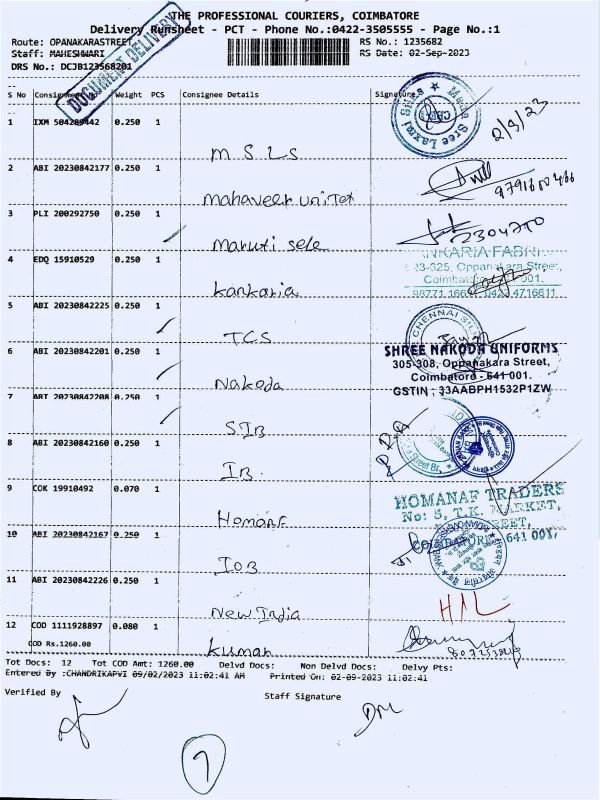 THE PROFESSIONAL COURIERS, COIMBATORE
Delivery Runsheet - PCT - Phone No.:0422-3505555 - Page No.:1
Route: OPANAKARASTREET
RS No.: 1235682
Staff: MAHESHWARI
RS Date: 02-Sep-2023
DRS No.: DCJB123568201
DOCUMENT DELIVERY
S No Consignment No Weight PCS Consignee Details Signature
1 IXM 504289442 0.250 1
M S L S
2/9/23
2 ABI 20230842177 0.250 1
Mahaveer Unitex
3 PLI 200292750 0.250 1
Maruti sele
4 EDQ 15910529 0.250 1
Kankaria
ANKARIA FABRI
23-525, Oppanakara Street,
5 ABI 20230842225 0.250 1
TCS
CHENNAI SIL
6 ABI 20230842201 0.250 1
Nakoda
SHREE NAKODA UNIFORMS
305-308, Oppanakara Street,
Coimbatore - 641 001.
GSTIN : 33AABPH1532P1ZW
7 ABI 20230842208 0.250 1
SIB
8 ABI 20230842160 0.250 1
IB
9 COK 19910492 0.070 1
Homanf
HOMANAF TRADERS
No: 5, T.K. MARKET,
641 001,
10 ABI 20230842167 0.250 1
IOB
11 ABI 20230842226 0.250 1
New India
12 COD 1111928897 0.080 1
COD Rs.1260.00
Kumar
Tot Docs: 12 Tot COD Amt: 1260.00 Delvd Docs: Non Delvd Docs: Delvy Pts:
Entered By :CHANDRIKAPVI 09/02/2023 11:02:41 AM Printed On: 02-09-2023 11:02:41
Verified By
Staff Signature
7